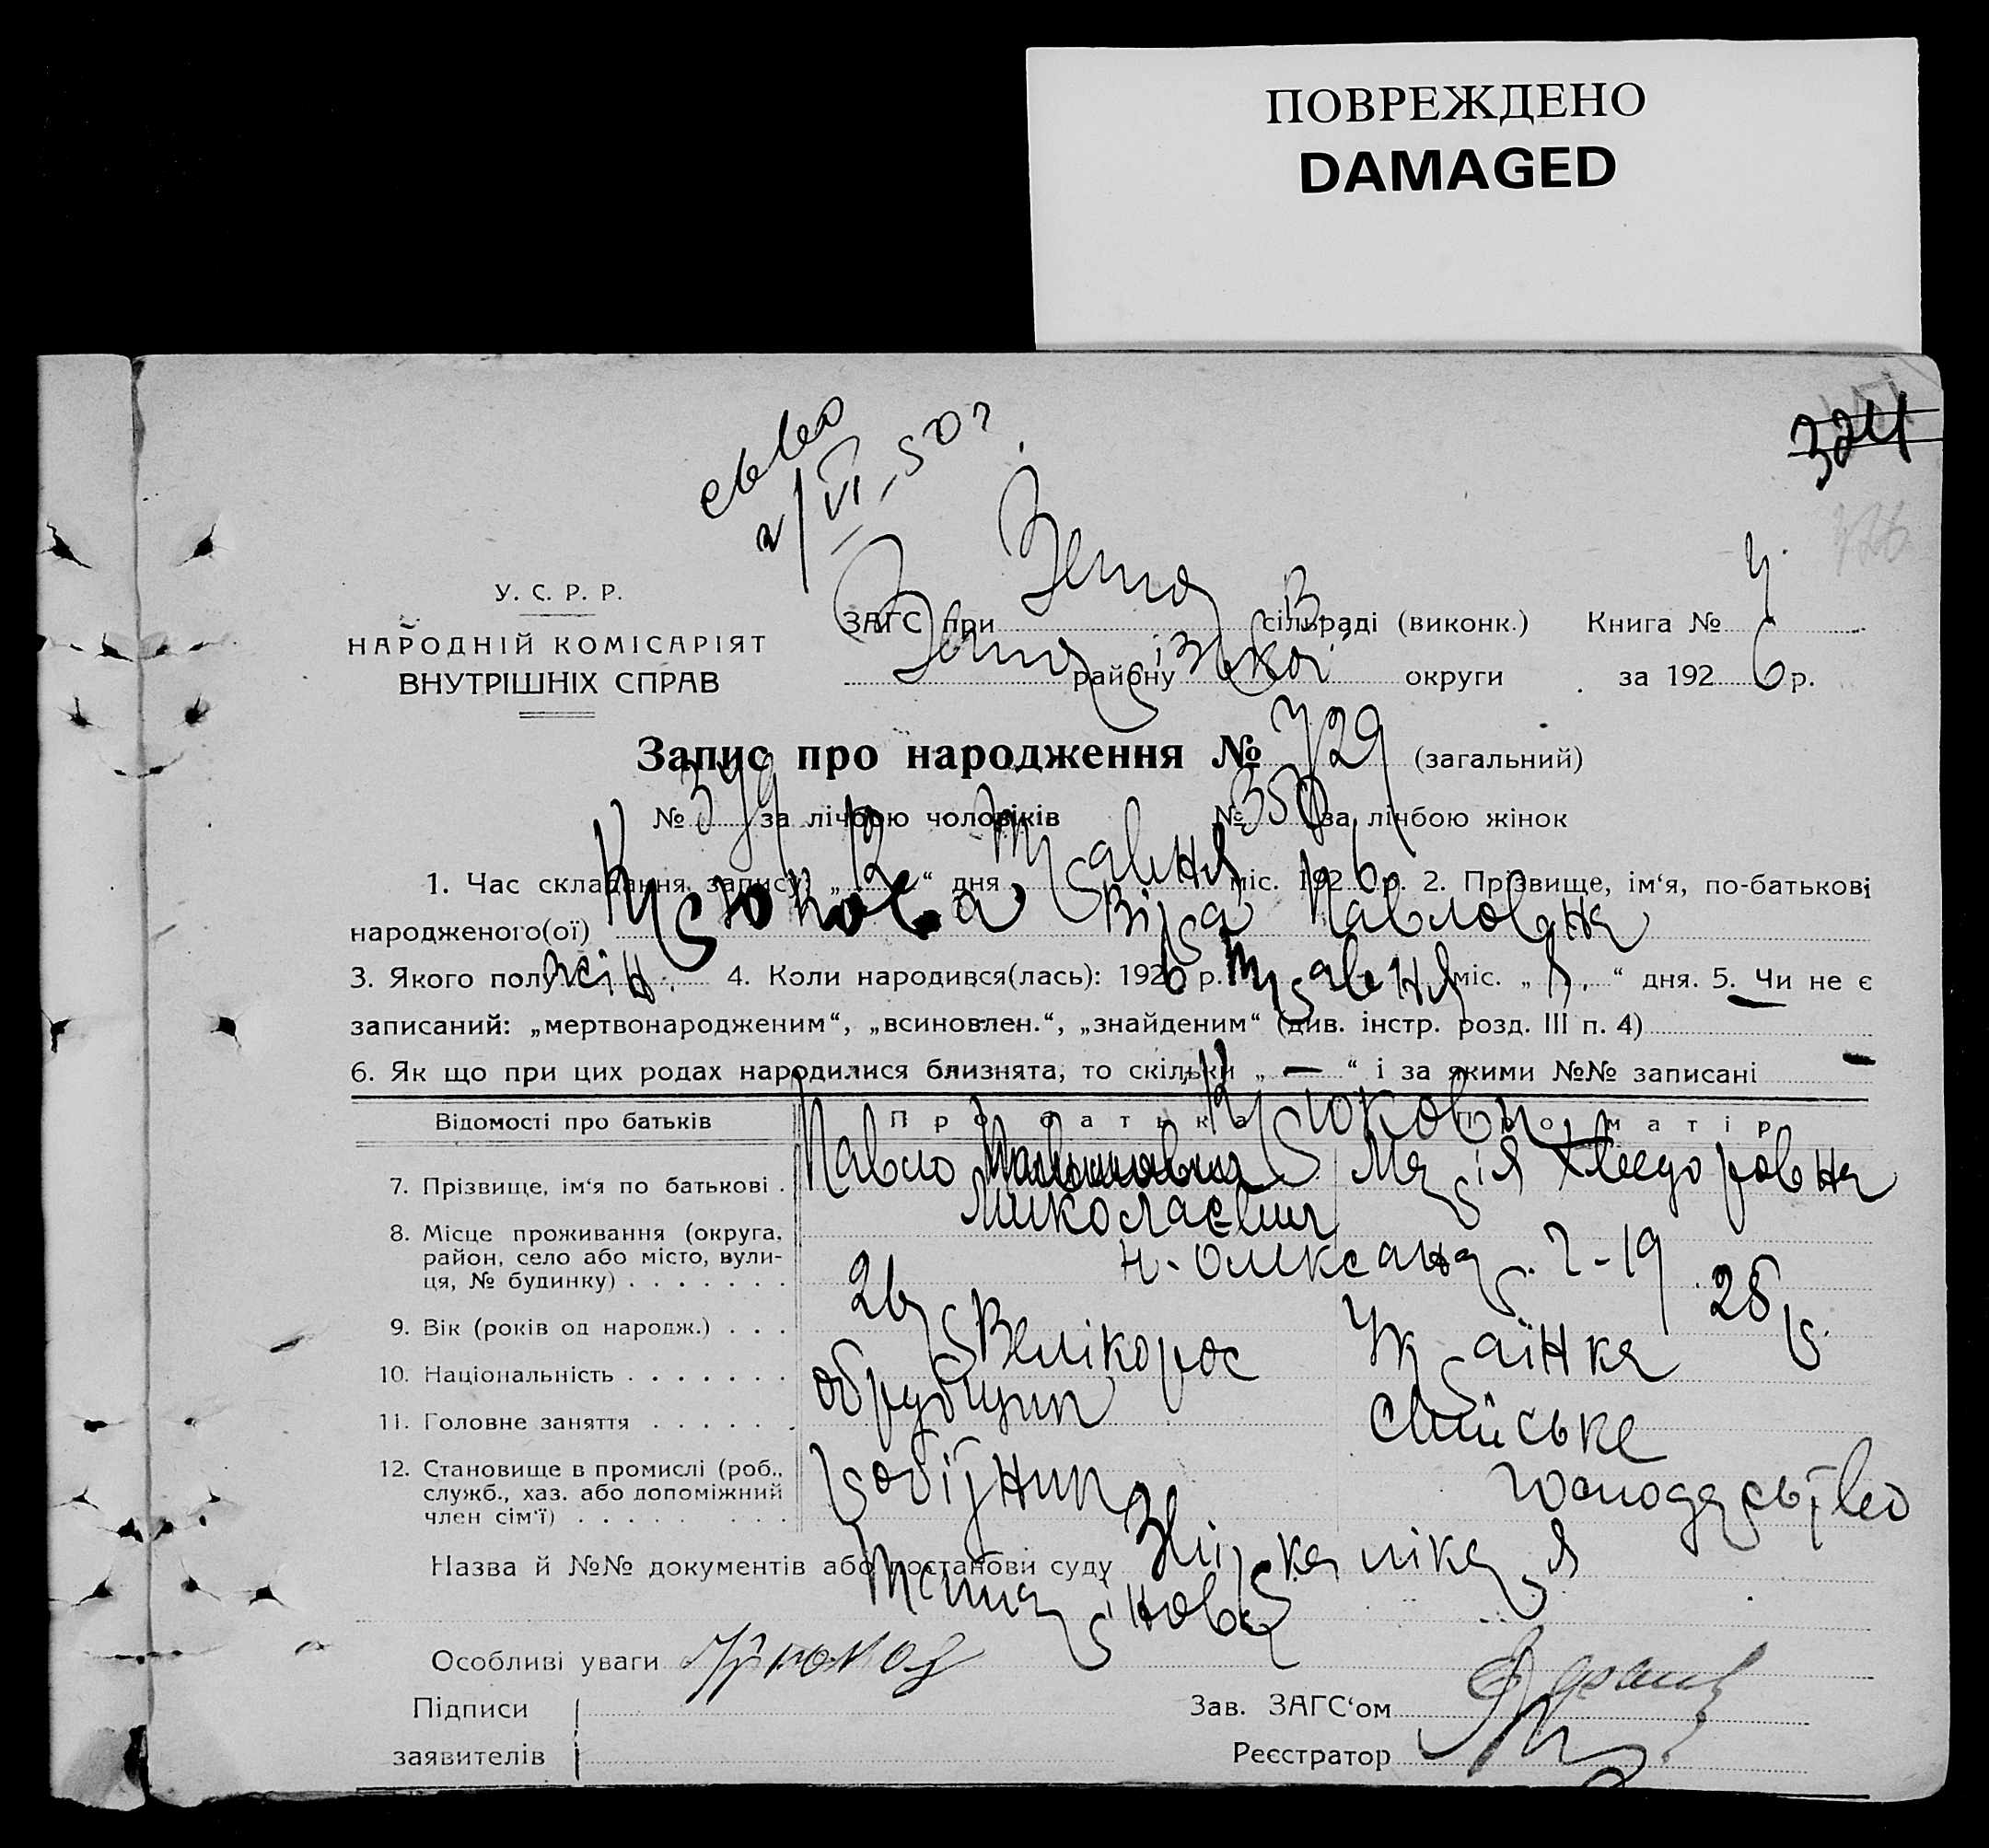 ПОВРЕЖДЕНО
DAMAGED
324
У. С. Р. Р.
НАРОДНІЙ КОМІСАРІЯТ
ВНУТРІШНІХ СПРАВ
ЗАГС при сільраді (виконк.) Книга № 4
району округи за 1926 р.
Запис про народження № 729 (загальний)
№ 379 за лічбою чоловіків № 350 за лічбою жінок
1. Час складання запису: „12“ дня травня міс. 1926 р. 2. Прізвище, ім‘я, по-батькові
народженого(ої) Крюкова Віра Павловна
3. Якого полу жін. 4. Коли народився(лась): 1926 р. травня міс. „8.“ дня. 5. Чи не є
записаний: „мертвонародженим“, „всиновлен.“, „знайденим“ (див. інстр. розд. III п. 4)
6. Як що при цих родах народилися близнята, то скільки „—“ і за якими №№ записані —
Відомості про батьків Про батька Про матір
Крюкови
7. Прізвище, ім‘я по батькові . Павло Миколаєвич Марія Хведоровна
8. Місце проживання (округа, район, село або місто, вулиця, № будинку) . . . . . . . Н-Олександр. 2-19
9. Вік (років од народж.) . . . 26 р 28 р.
10. Національність . . . . . . . Велікорос Українка
11. Головне заняття . . . . . . обрубщик сільське
12. Становище в промислі (роб., служб., хаз. або допоміжний член сім‘ї) . . . . . . . . робітник господарство
Назва й №№ документів або постанови суду лікаря
Особливі уваги Крюков
Підписи
заявителів
Зав. ЗАГС‘ом
Реєстратор